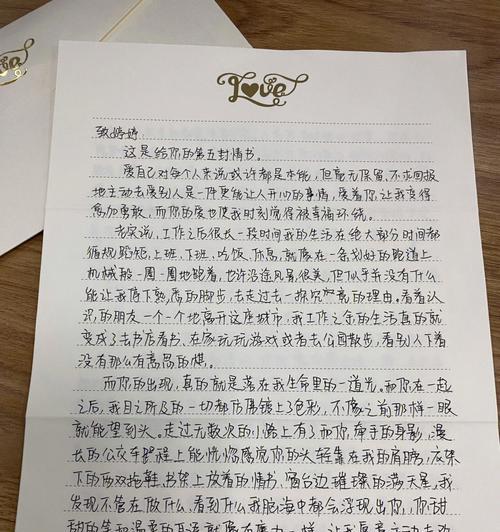 Love
致婷婷：
这是给你的第五封情书。
爱自己对每个人来说或许都是本能，但毫无保留、不求回报
地主动去爱别人是一件更能让人开心的事情，爱着你，让我变得
愈加勇敢，而你的爱也使我时刻觉得被幸福环绕。
老实说，工作之后很长一段时间我的生活在绝大部分时间都
循规蹈矩，上班、下班、吃饭、休息，就像在一条划好的跑道上
机械般一周一周地跑着，也许沿途风景很美，但似乎并没有什么
能让我停下熟悉的脚步，去走过去一探究竟的理由，看着认
识的朋友一个一个地离开这座城市，我工作之余的生活真的就
变成了去书店看书、在家玩玩游戏或者去公园散步，看别人下着
没有那么有高局的棋。
而你的出现，真的就是落在我生命里的一道光。和你在一起
之后，我目之所及的一切都仿佛镀上了色彩，不像之前那样一眼
就能望到头。走过无数次的小路上有了和你牵手的身影，漫
长的公交车路程上能恍惚感觉你的头轻靠在我的肩膀，衣架
下的两双拖鞋、书架上放着的情书、窗台边璀璨的满天星，我
发现不管在做什么、看到什么我脑海中都会浮现出你，你甜
甜的笑和温柔的